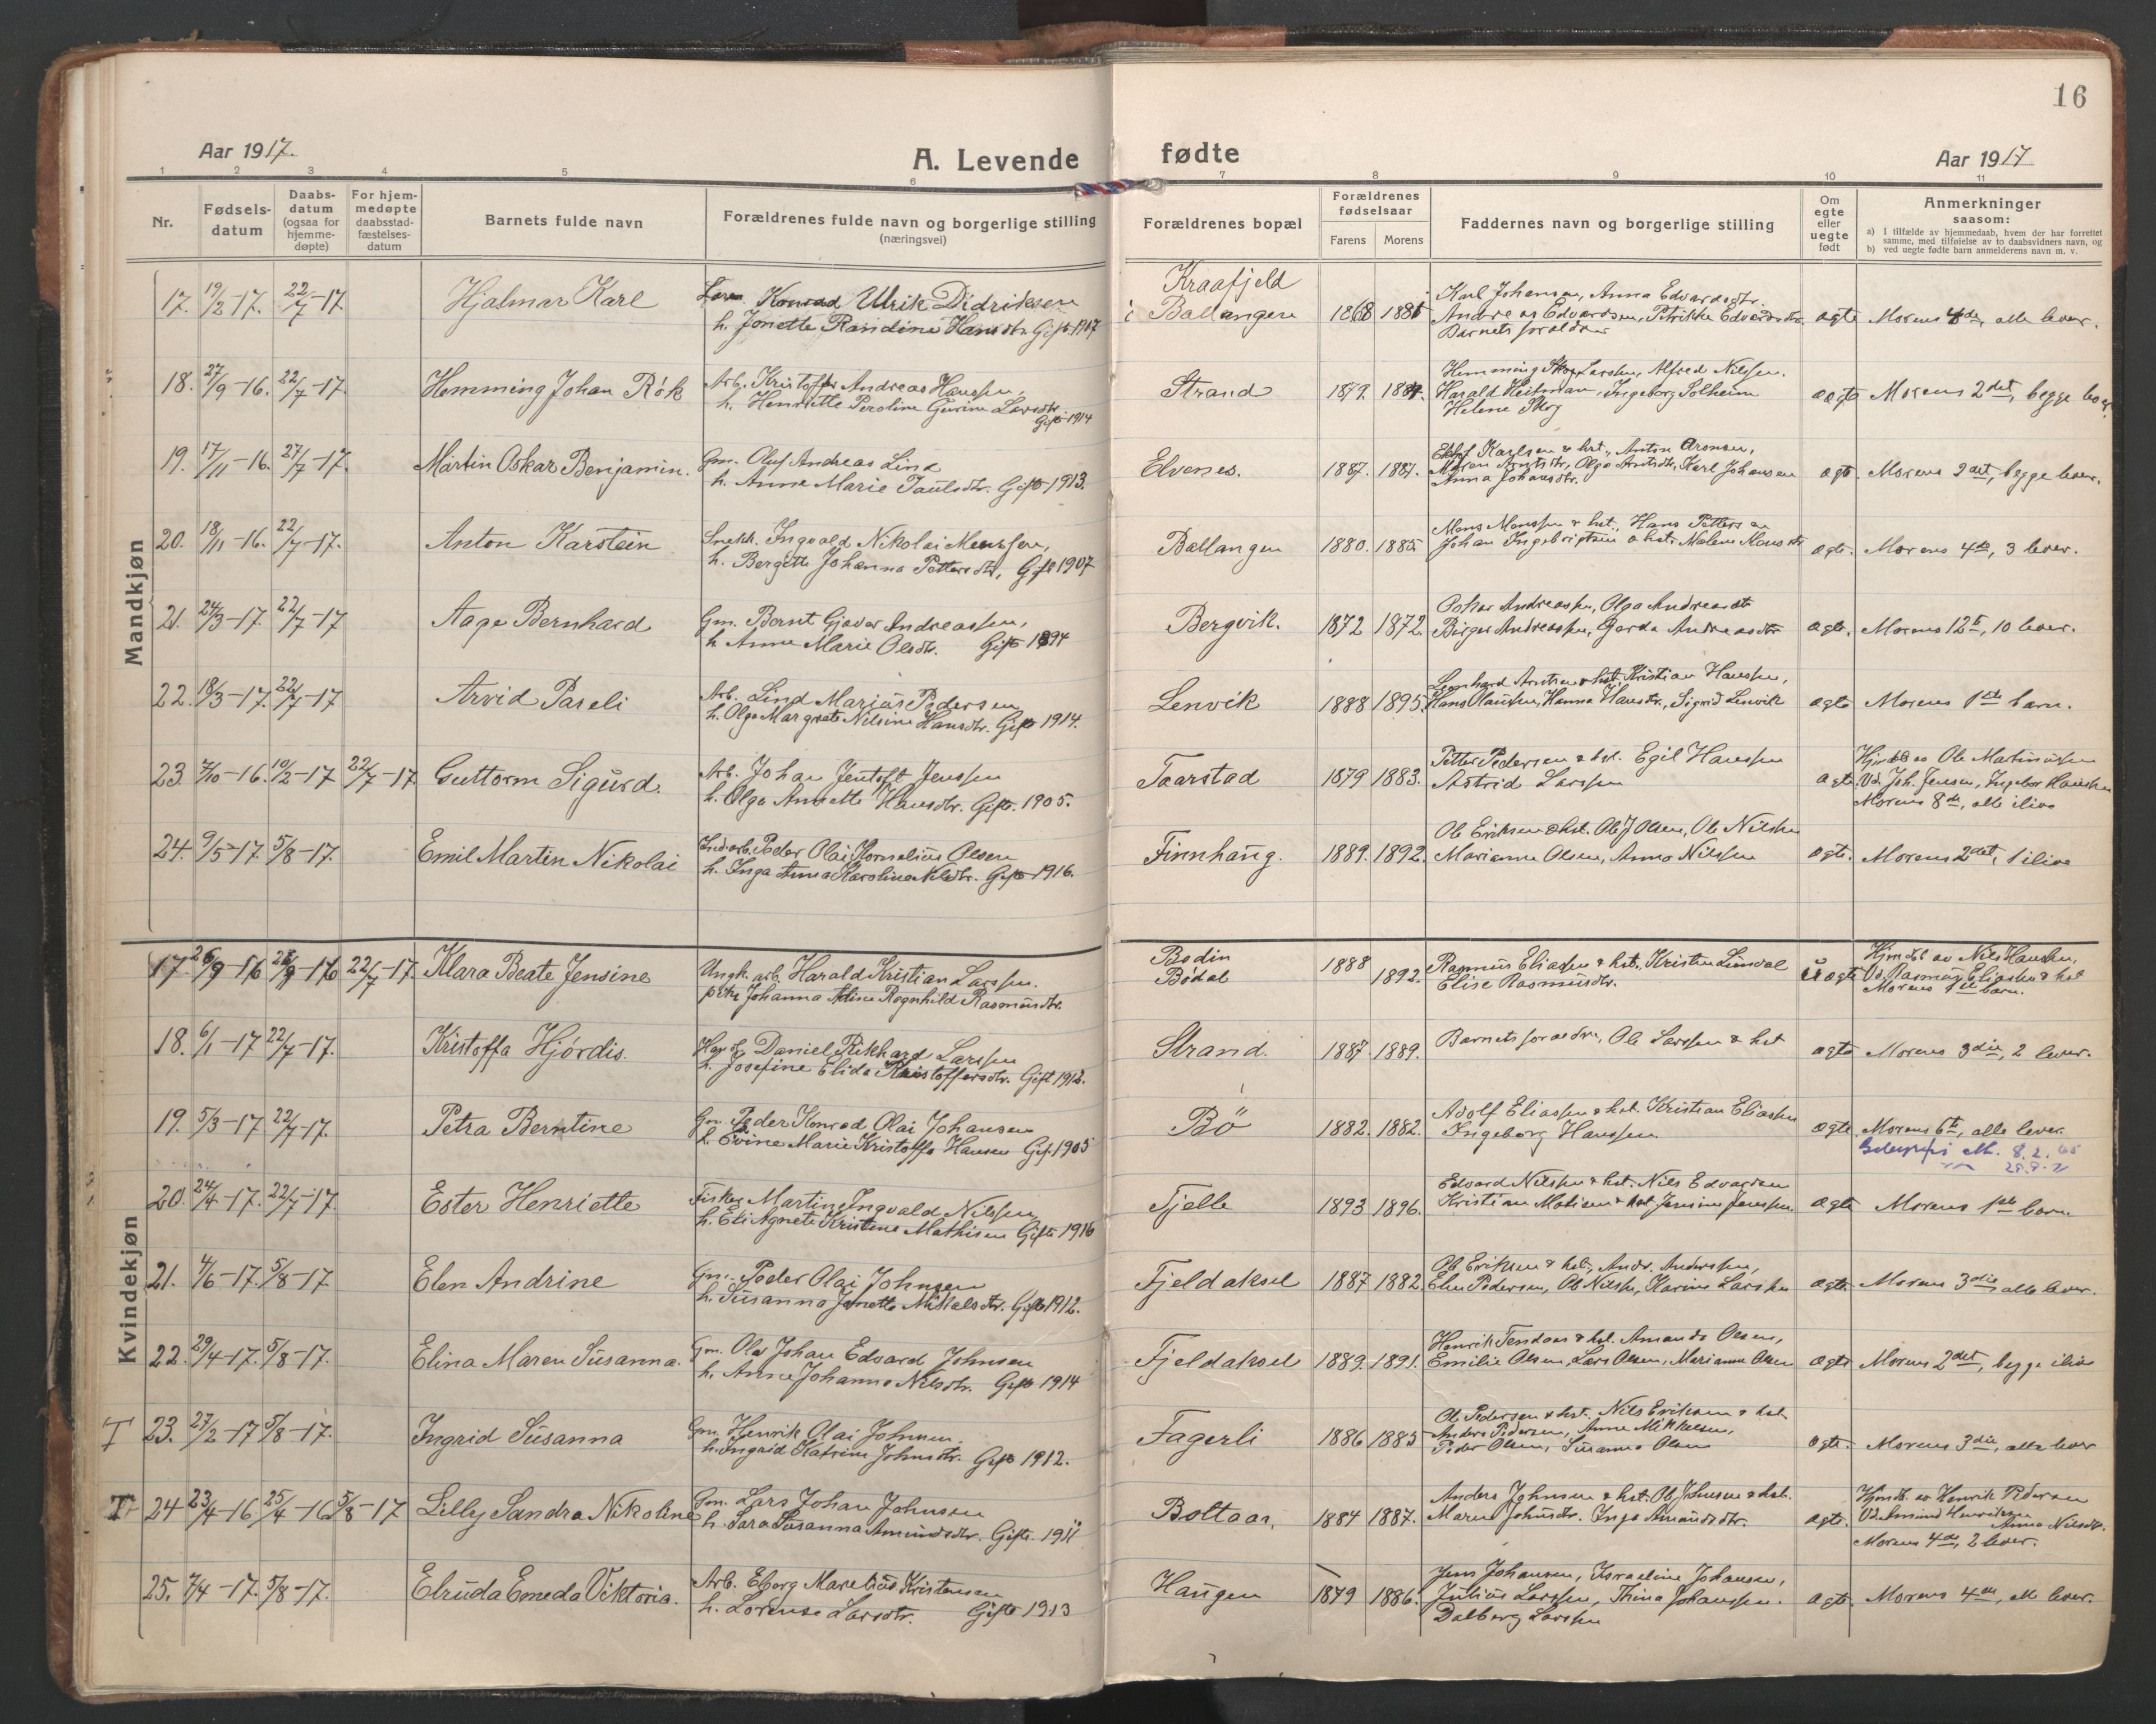 16
Aar 1917.
A. Levende
fødte
Aar 1917
1 2 3 4 5 6 7 8 9 10 11
Nr.
Fødsels-
datum
Daabs-
datum
(ogsaa for
hjemme-
døpte)
For hjem-
medøpte
daabsstad-
fæstelses-
datum
Barnets fulde navn
Forældrenes fulde navn og borgerlige stilling
(næringsvei)
Forældrenes bopæl
Forældrenes
fødselsaar
Farens Morens
Faddernes navn og borgerlige stilling
Om
egte
eller
uegte
født
Anmerkninger
saasom:
a) I tilfælde av hjemmedaab, hvem der har forrettet
samme, med tilføielse av to daabsvidners navn, og
b) ved uegte fødte barn anmelderens navn m. v.
Mandkjøn
17. 19/2-17. 22/7-17. Hjalmar Karl
Konrad Ulrik Didriksen
h. Jonette Randine Hansdtr. Gift 1907
Kraafjeld
i Ballangen 1868 1881
Karl Johansen, Anna Edvardsdtr.
Andreas Edvardsen, Petrikke Edvardsdtr.
Barnets foraldre
ægte Morens 4de, alle lever.
18. 27/9-16. 22/7-17. Hemming Johan Røk
Arb. Kristoffer Andreas Hanssen,
h. Henriette Peroline Gurine Larsdtr.
Gift 1914
Strand 1879. 1884.
Hemming Skog Larssen, Alfred Nilssen.
Harald Heitman, Ingeborg Solheim
Helene Skog
ægte Morens 2det, begge lever.
19. 17/11-16. 27/7-17. Martin Oskar Benjamin.
Gm. Oluf Andreas Lind
h. Anne Marie Paulsdtr. Gift 1913.
Elvenes. 1887. 1887.
Karlsen & hst., Anton Aronsen,
Maren Arntsdtr, Olga Arntsdtr, Karl Johansen
Anna Johansdtr.
ægte. Morens 2det, begge lever.
20. 18/11-16. 22/7-17. Anton Karstein
Snekk. Ingvald Nikolai Monssen,
h. Bergitte Johanna Pettersdtr, Gift 1907
Ballangen 1880. 1885
Mons Monssen & hst., Hans Pettersen
Johan Ingebrigtsen & hst. Malene Monsdtr
ægte. Morens 4de, 3 lever.
21. 24/3-17. 22/7-17 Aage Bernhard
Gm. Bernt Gjøver Andreassen,
h Anne Marie Olsdtr. Gift 1894
Bergvik. 1872 1872.
Oskar Andreassen, Olga Andreasdtr
Birger Andreassen, Gerda Andreasdtr
ægte. Morens 12te, 10 lever.
22. 18/3-17. 22/7-17 Arvid Pareli
Arb. Lind Marius Pedersen
h. Olga Margrete Nilsine Hansdtr. Gift 1914.
Lenvik 1888 1895.
Leonhard Arntsen & hst. Kristian Hanssen,
Hans Olaussen, Hanna Hansdtr., Sigrid Lenvik
ægte Morens 1ste barn.
23. 7/10-16. 10/2-17 22/7-17. Guttorm Sigurd.
Arb. Johan Jentoft Jenssen
h. Olga Annette Hansdtr. Gift. 1905.
Taarstad 1879 1883.
Petter Pedersen & hst. Egil Hanssen
Astrid Larssen
ægte.
Hjmdb av Ole Martinussen
Vd. Joh. Jensen, Ingebor Hanssen
Morens 8de, alle ilive
24. 9/5-17. 5/8-17. Emil Martin Nikolai
Peder Olai Kornelius Olsen
h. Inga Anna Karoline Nilsdtr. Gift 1916.
Finnhaug. 1889. 1892.
Ole Eriksen & hst. Ole J Olsen, Ole Nilssen
Marianne Olsen, Anna Nilssen
ægte. Morens 2det, 1 ilive
Kvindekjøn
17. 26/9-16 28/9-16 22/7-17. Klara Beate Jensine
Ungk. arb. Harald Kristian Larssen.
pike Johanna Adine Ragnhild Rasmusdtr.
Bodin
Bødal 1888 1892.
Rasmus Eliassen & hst., Kristen Lundal
Elise Rasmusdtr.
uægte
Hjmdb av Nils Hanssen,
Vd. Rasmus Eliassen & hst
Morens 1ste barn.
18. 6/1-17 22/7-17. Kristoffa Hjørdis.
Daniel Rikhard Larssen
h. Josefine Elida Kristoffersdtr. Gift 1912.
Strand. 1887. 1889.
Barnets foraeldre, Ole Larssen & hst
ægte Morens 3die, 2 lever.
19. 5/3-17 22/7-17. Petra Berntine
Gm. Peder Konrad Olai Johansen
h. Evine Marie Kristoffa Hansen Gift 1905
Bö 1882. 1882.
Adolf Eliassen & hst. Kristian Eliassen
Ingeborg Hanssen
ægte. Morens 6te, alle lever.
8.2.65
20. 24/4-17. 22/7-17. Ester Henriette
Fisker Martin Ingvald Nilssen
h. Eli Agnete Kristine Mathisen Gift 1916
Fjelle 1893 1896.
Edvard Nilssen & hst. Nils Edvardsen
Kristian Matisen & hst Jensine Jenssen
ægte Morens 1ste barn
21. 4/6-17. 5/8-17. Elen Andrine
Gm. Peder Olai Johnsen
h. Susanna Janette Mikalsdtr. Gift 1912.
Fjeldaksel 1887 1882.
Ole Eriksen & hst, Andr. Anderssen,
Elen Pedersen, Ole Nilssen, Karine Larssen
ægte. Morens 3die alle lever.
22. 29/4-17. 5/8-17. Elina Maren Susanna.
Gm. Ole Johan Edvard Johnsen
h. Anne Johanna Nilsdtr. Gift 1914
Fjeldaksel 1889. 1891.
Henrik & hst. Amanda Olsen,
Emilie Olsen, Lars Olsen, Marianne Olsen
ægte Morens 2det, begge ilive
T 23. 27/2-17 5/8-17. Ingrid Susanna
Gm. Henrik Olai Johnsen.
h. Ingrid Katrine Johnsdtr. Gift 1912.
Fagerli 1886 1885
Ole Pedersen & hst. Nils Eriksen & hst.
Anders Pedersen, Anne Mikkelsen,
Peder Olsen, Susanna Olsen
ægte. Morens 3die, alle lever
T 24 23/4-16 25/4-16 5/8-17 Lilly Sandra Nikoline
Gm. Lars Johan Johnsen
h. Sara Susanna Amundsdtr. Gift. 1911
Boltaas, 1884 1887.
Anders Johnsen & hst. Ole Johnsen & hst.
Maren Johnsdtr. Inga Amundsdtr.
ægte.
Hjmdb. av Henrik Pedersen
Vd. Amund Henriksen
Anna Nilsdtr.
Morens 4de, 2 lever.
25. 7/4-17. 5/8-17. Elruda Emeda Viktoria.
Arb. Eborg Marelius Kristensen
h. Lorense Larsdtr. Gift 1913
Haugen 1879 1886.
Jens Johansen, Israeline Johansen,
Julius Larssen, Thina Johanssen.
Dalberg Larssen
ægte. Morens 4de, alle lever.